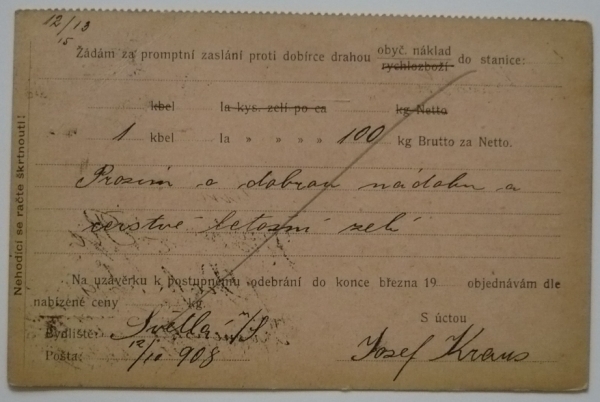 12/13
15
Žádám za promptní zaslání proti dobírce drahou obyč. náklad
rychlozboží do stanice:
kbel Ia kys. zelí po ca kg Netto
1 kbel Ia » » » » 100 kg Brutto za Netto.
Prosím o dobrou nádobu a
čerstvé letošní zelí
Na uzávěrku k postupnému odebrání do konce března 19 objednávám dle
nabízené ceny kg.
S úctou
Bydliště: Světlá n/S.
Pošta: 12/10 908
Josef Kraus
Nehodící se račte škrtnouti!